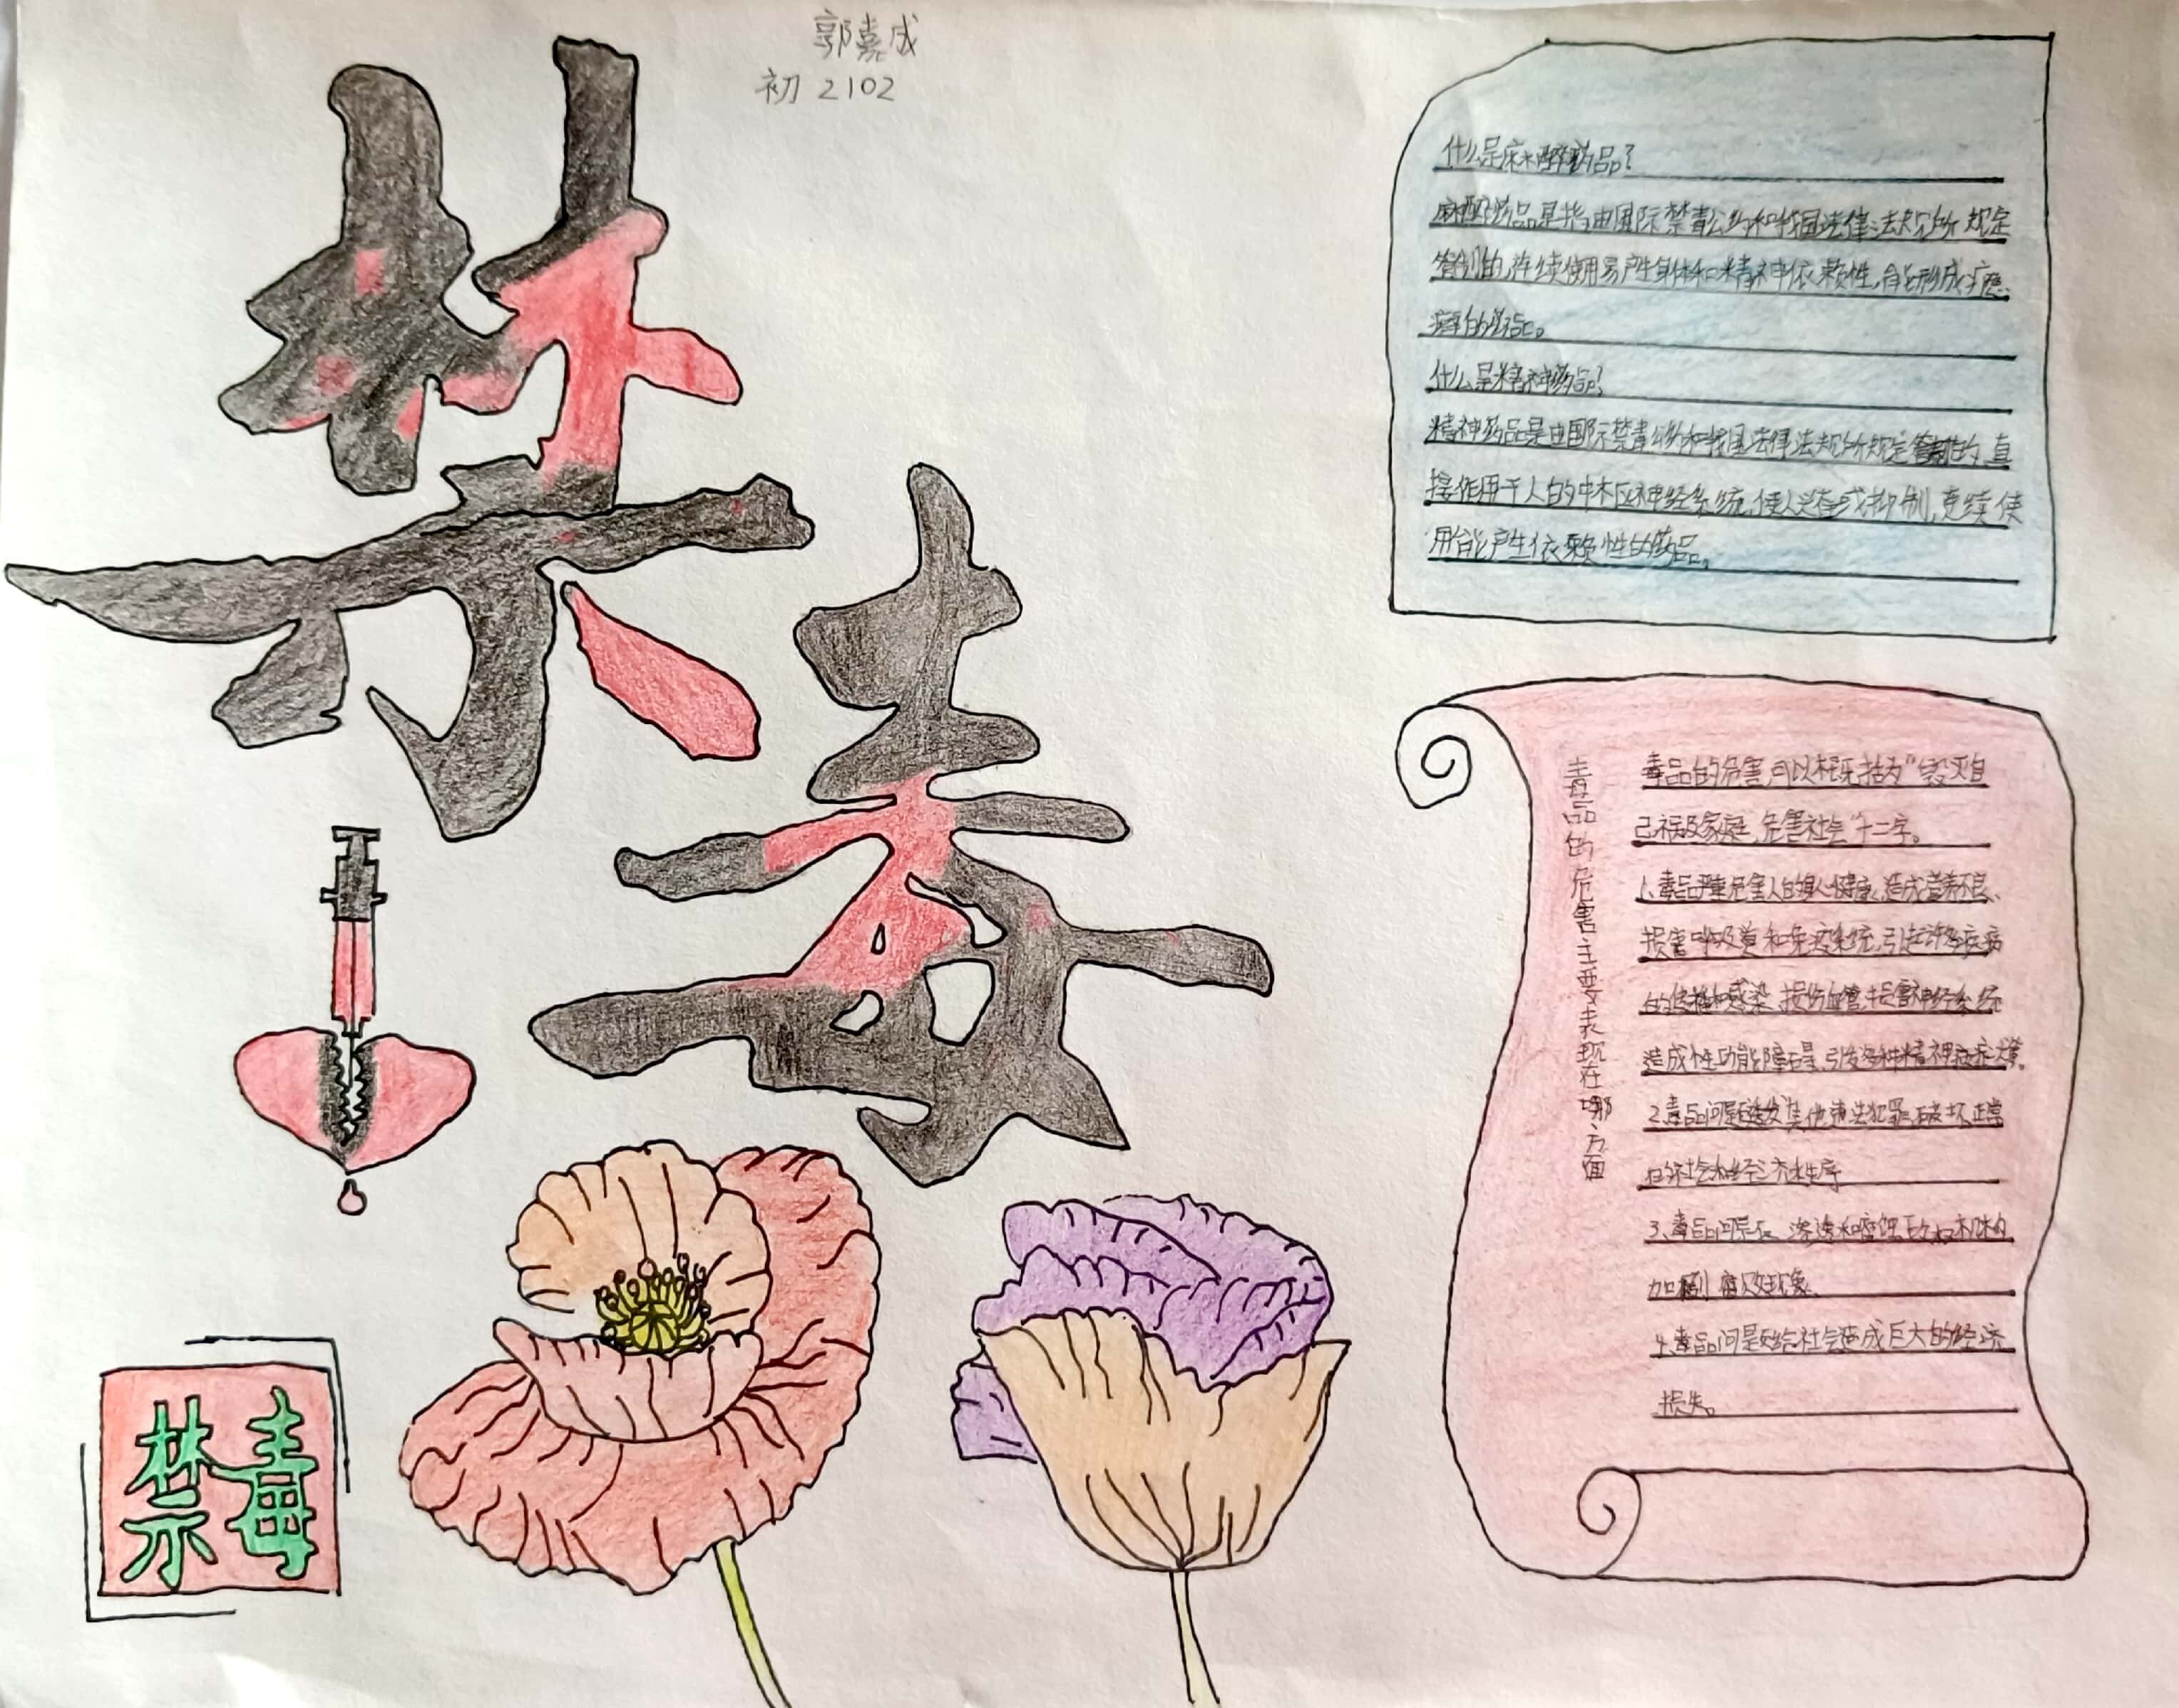 郭嘉成
初 2102
禁
毒
什么是麻醉药品?
麻醉药品是指由国际禁毒公约和我国法律法规所规定
管制的,连续使用易产生身体和精神依赖性,能形成瘾
癖的药品。
什么是精神药品?
精神药品是由国际禁毒公约和我国法律法规所规定管制的,直
接作用于人的中枢神经系统,使人兴奋或抑制,连续使
用能产生依赖性的药品。
毒品的危害主要表现在哪方面
毒品的危害可以概括为“毁灭自
己祸及家庭,危害社会”十二字。
1、毒品严重危害人的身心健康,造成营养不良、
损害呼吸道和免疫系统,引起许多疾病
的传播和感染、损伤血管,损害神经系统
造成性功能障碍,引发多种精神病症状等。
2.毒品问题诱发其他违法犯罪,破坏正常
的社会和经济秩序
3、毒品问题 渗透和腐蚀政权机构
加剧腐败现象
4、毒品问题给社会造成巨大的经济
损失。
禁毒